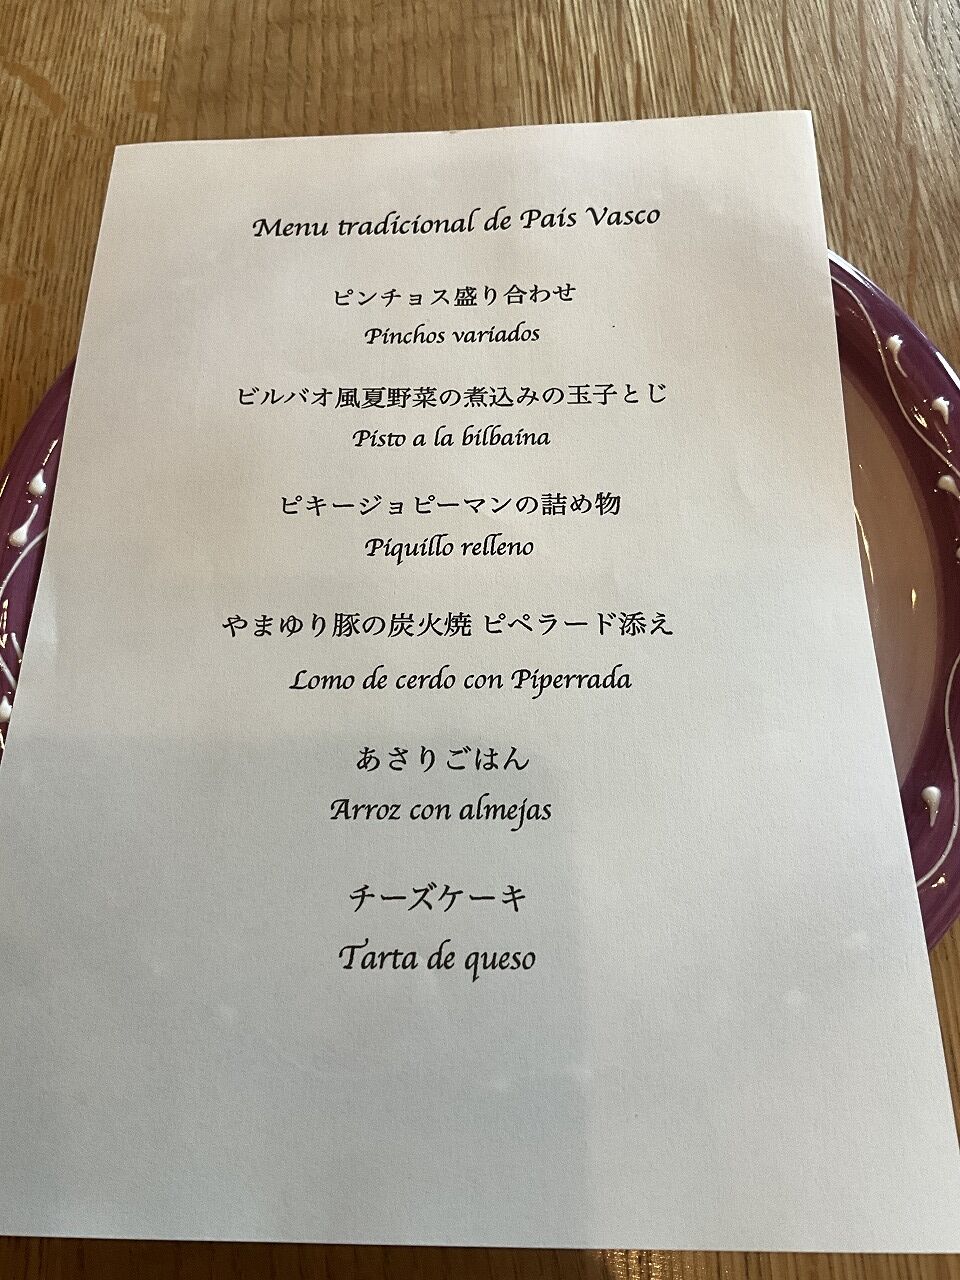 Menu tradicional de País Vasco
ピンチョス盛り合わせ
Pinchos variados
ビルバオ風夏野菜の煮込みの玉子とじ
Pisto a la bilbaína
ピキージョピーマンの詰め物
Piquillo relleno
やまゆり豚の炭火焼 ピペラード添え
Lomo de cerdo con Piperrada
あさりごはん
Arroz con almejas
チーズケーキ
Tarta de queso